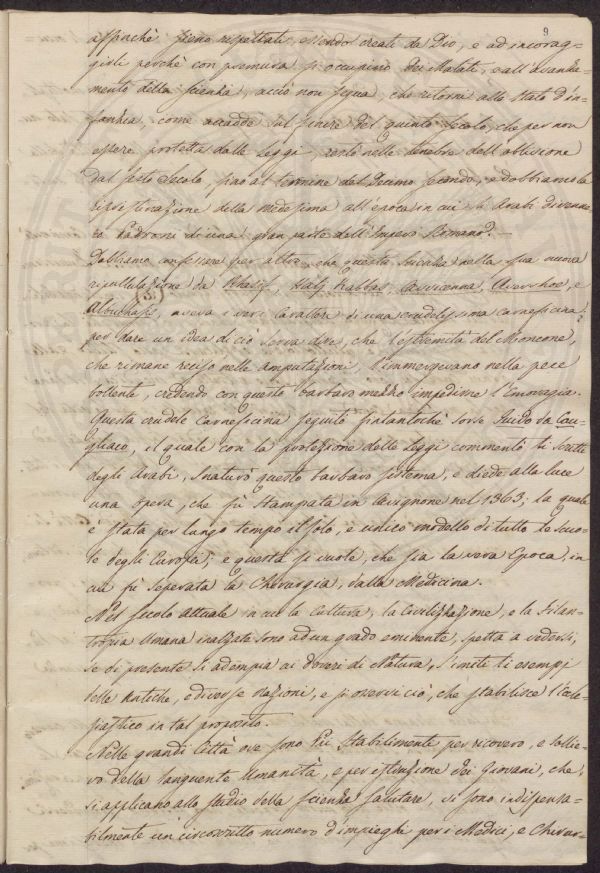 9
affinchè sieno rispettati, essendo creati da Dio, e ad incorag-
girli perchè con premura si occupino dei Malati, e all'avanza-
mento della scienza, acciò non segua, che ritorni allo stato d'in-
fanzia, come accadde sul finire del quinto Secolo, che per non
essere protetta dalle Leggi, restò nelle tenebre dell'obblivione
dal sesto Secolo, fino al termine del Decimo secondo, e dobbiamo la
ripristinazione della medesima all'epoca in cui li Arabi divenne-
ro Padroni di una gran parte dell'Impero Romano.
Dobbiamo confessare per altro, che questa scienza nella sua nuova
ripullulazione da Khalif, Haly Rabbas, Avicenna, Averrhoe, e
Albuchasis, aveva i veri caratteri di una crudelissima carneficina;
per dare un idea di ciò serva dire, che l'estremità del Moncone,
che rimane reciso nelle amputazioni, l'immergevano nella pece
bollente, credendo con questo barbaro mezzo impedirne l'Emoragia.
Questa crudele Carneficina seguitò fintantochè sorse Guido da Cau-
gliaco, il quale con la protezione delle Leggi commentò li Scritti
degli Arabi, snaturò questo barbaro sistema, e diede alla luce
una opera, che fù stampata in Avignone nel 1363; la quale
è stata per lungo tempo il solo, e unico modello di tutte le scuo-
le degli Europei; e questa si vuole, che sia la vera Epoca, in
cui fù seperata la Chirurgia, dalla Medicina.
Nel secolo attuale in cui la Cultura, la Civilizzazione, e la Filan-
tropia Umana inalzate sono ad un grado eminente, spetta a vedersi,
se di presente si adempia ai doveri di Natura, s'imiti li esempj
delle Antiche, e diverse Nazioni, e si osservi ciò, che stabilisce l'Eccle-
siastico in tal proposito.
Nelle grandi Città ove sono Pii Stabilimenti per ricovero, e sollie-
vo della languente Umanità, e per istruzione dei Giovani, che
si applicano allo studio della scienza salutare, vi sono indispensa-
bilmente un circoscritto numero d'impieghi per i Medici, e Chirur-